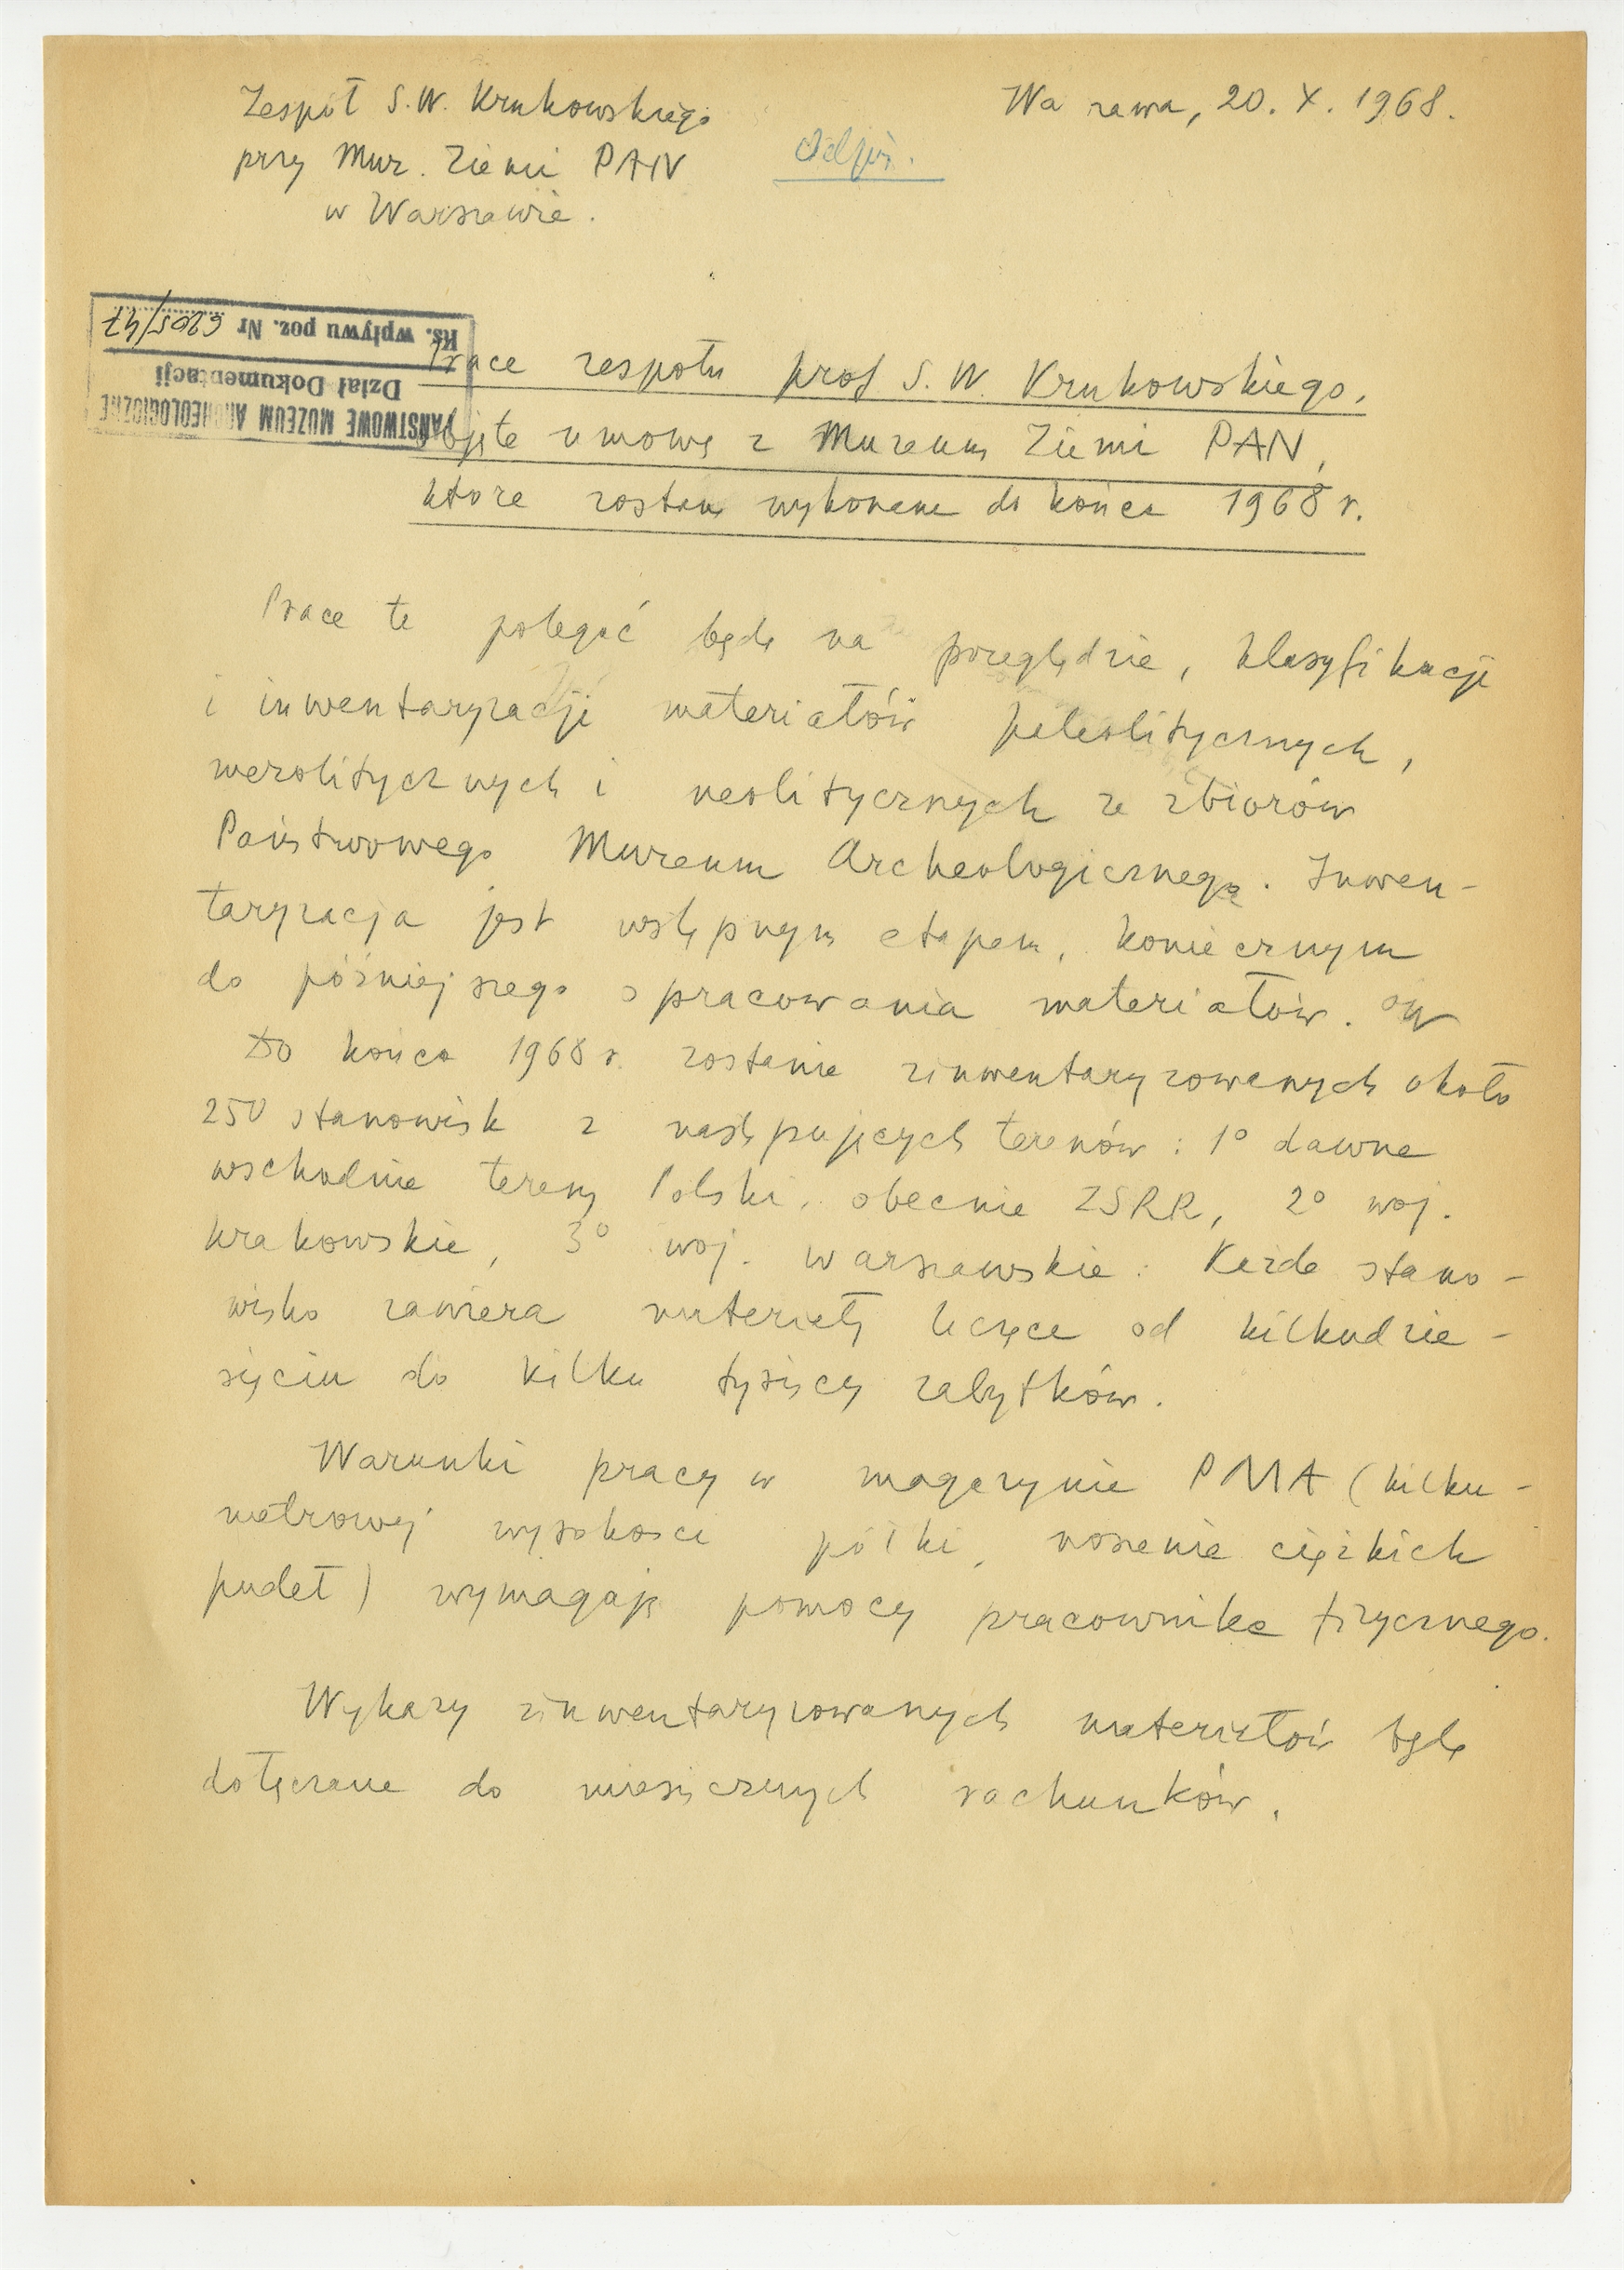 Zespół S.W. Krukowskiego
przy Muz. Ziemi PAN
w Warszawie.
Wa zawa, 20. X. 1968.
Odpis.
PAŃSTWOWE MUZEUM ARCHEOLOGICZNE
Dział Dokumentacji
Ks. wpływu poz. Nr 6205/47
Prace zespołu prof S. W. Krukowskiego,
objęte umową z Muzeum Ziemi PAN,
które zostaną wykonane do końca 1968 r.
Prace te polegać będą na przeglądzie, klasyfikacji
i inwentaryzacji materiałów paleolitycznych,
mezolitycznych i neolitycznych ze zbiorów
Państwowego Muzeum Archeologicznego. Inwen-
taryzacja jest wstępnym etapem, koniecznym
do późniejszego opracowania materiałów.
Do końca 1968 r. zostanie zinwentaryzowanych około
250 stanowisk z następujących terenów: 1° dawne
wschodnie tereny Polski, obecnie ZSRR, 2° woj.
krakowskie, 3° woj. warszawskie. Każde stano-
wisko zawiera materiały liczące od kilkudzie-
sięciu do kilku tysięcy zabytków.
Warunki pracy w magazynie PMA (kilku-
metrowej wysokości półki, noszenie ciężkich
pudeł) wymagają pomocy pracownika fizycznego.
Wykazy zinwentaryzowanych materiałów będą
dołączane do miesięcznych rachunków.